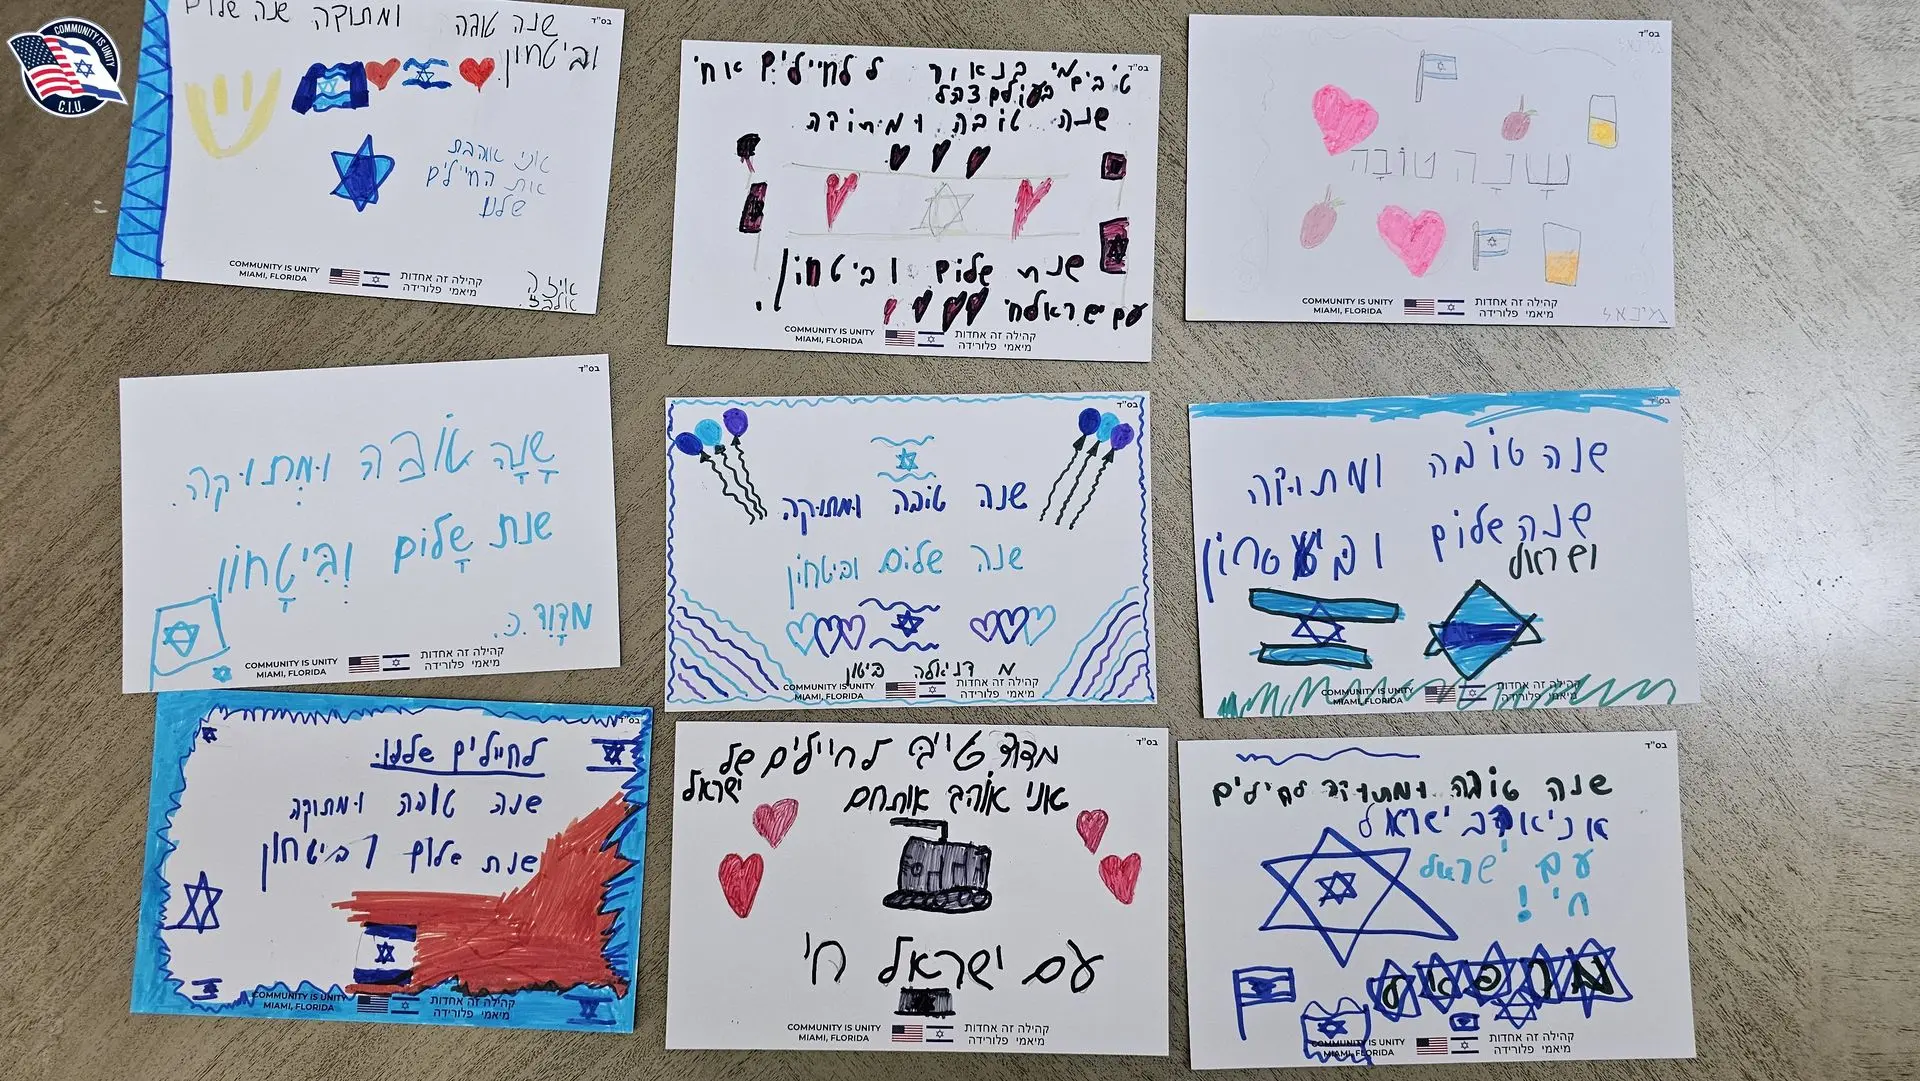 COMMUNITY IS UNITY
C.I.U.
בס"ד
שנה טובה ומתוקה שנה שלום
וביטחון.
אני אוהבת
את החיילים
שלנו
COMMUNITY IS UNITY
MIAMI, FLORIDA
קהילה זה אחדות
מיאמי פלורידה
בס"ד
בעולם צהל
שנה טובה ומתוקה
שנת שלום וביטחון
עם ישראל חי
COMMUNITY IS UNITY
MIAMI, FLORIDA
קהילה זה אחדות
מיאמי פלורידה
בס"ד
שָנָה טוֹבָה
COMMUNITY IS UNITY
MIAMI, FLORIDA
קהילה זה אחדות
מיאמי פלורידה
בס"ד
שָנָה טוֹבה וּמְתוּקה.
שנת שָלוֹם וְבִּיטָחוֹן.
מדָוִד .כ.
COMMUNITY IS UNITY
MIAMI, FLORIDA
קהילה זה אחדות
מיאמי פלורידה
בס"ד
שנה טוֹבה ומתוקה
שנה שלוֹם וביטחון
מ דניאלה ביטון
COMMUNITY IS UNITY
MIAMI, FLORIDA
קהילה זה אחדות
מיאמי פלורידה
בס"ד
שנה טוֹבה ומתוקה
שנה שלוֹם
וישראל
COMMUNITY IS UNITY
MIAMI, FLORIDA
קהילה זה אחדות
מיאמי פלורידה
בס"ד
לחיילים שלנו.
שנה טובה ומתוקה
שנת שלום וביטחון
COMMUNITY IS UNITY
MIAMI, FLORIDA
קהילה זה אחדות
מיאמי פלורידה
בס"ד
לחיילים של
ישראל
אני אוֹהב אותחם
עם ישראל חי
COMMUNITY IS UNITY
MIAMI, FLORIDA
קהילה זה אחדות
מיאמי פלורידה
בס"ד
שנה טוֹבה ומתוקה לחילים
ישראל
עם ישראל
חי!
COMMUNITY IS UNITY
MIAMI, FLORIDA
קהילה זה אחדות
מיאמי פלורידה